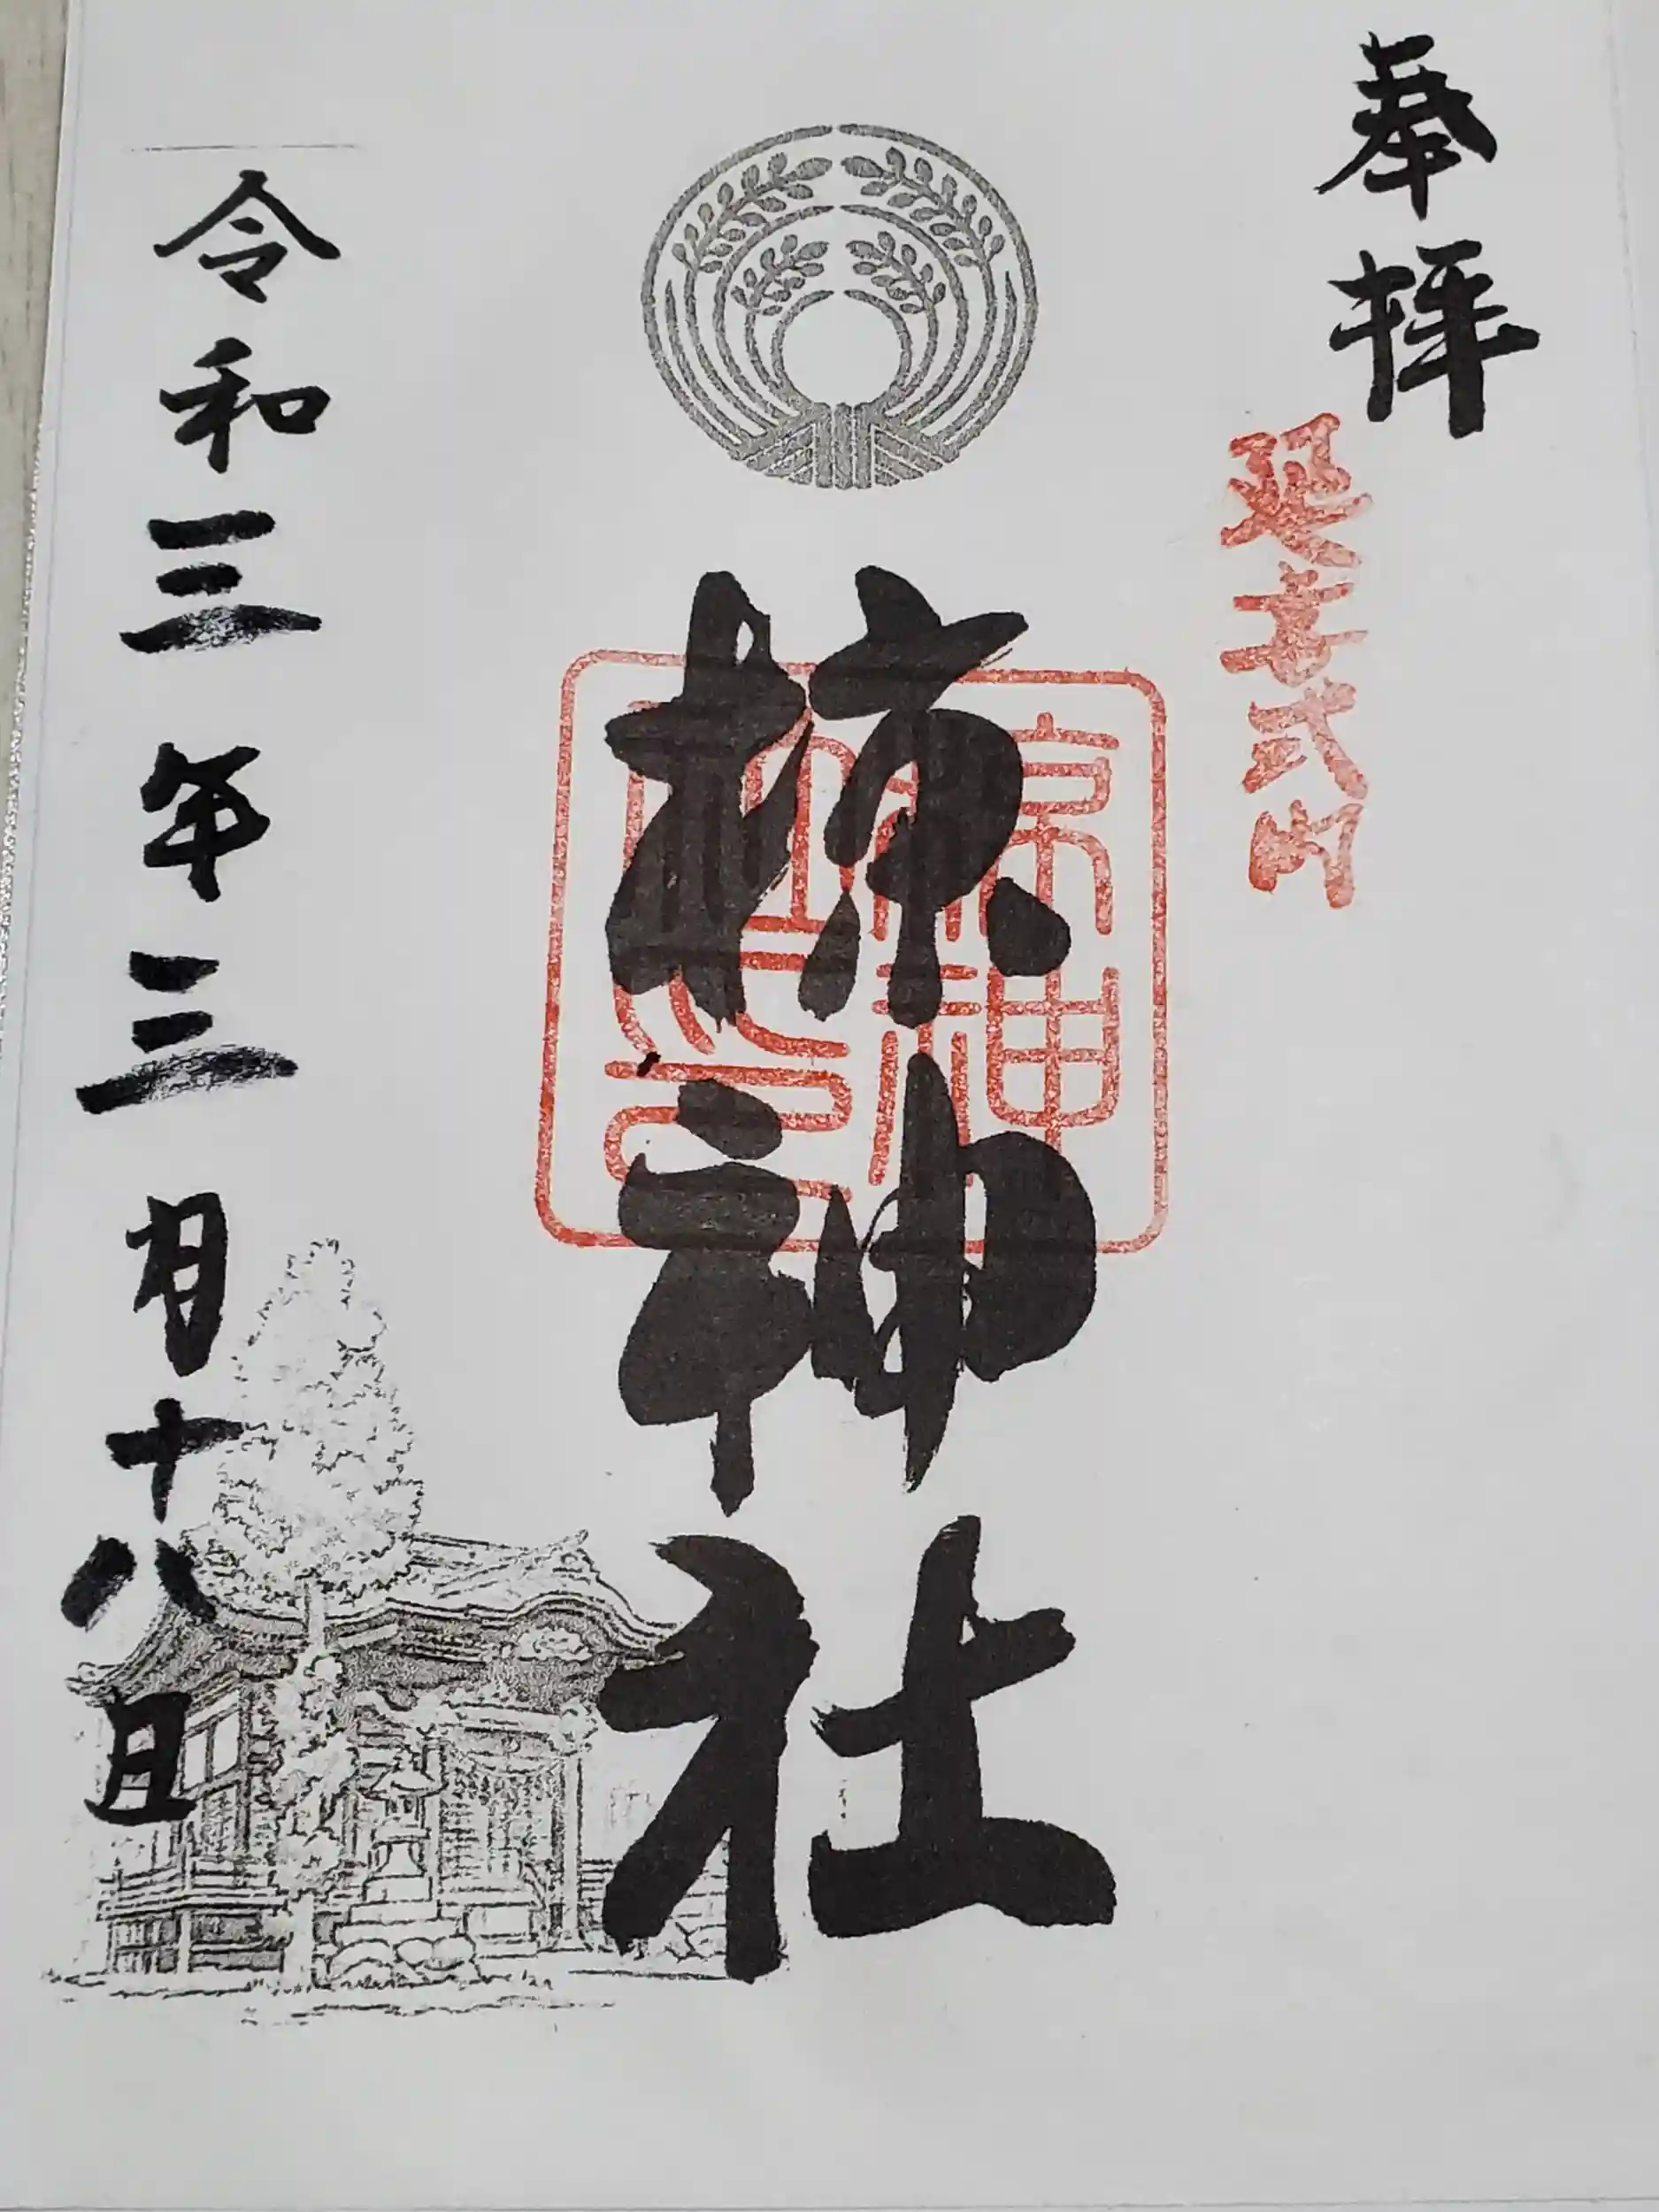 奉拝
延喜式内
椋神社
椋神社之印
令和三年三月十八日